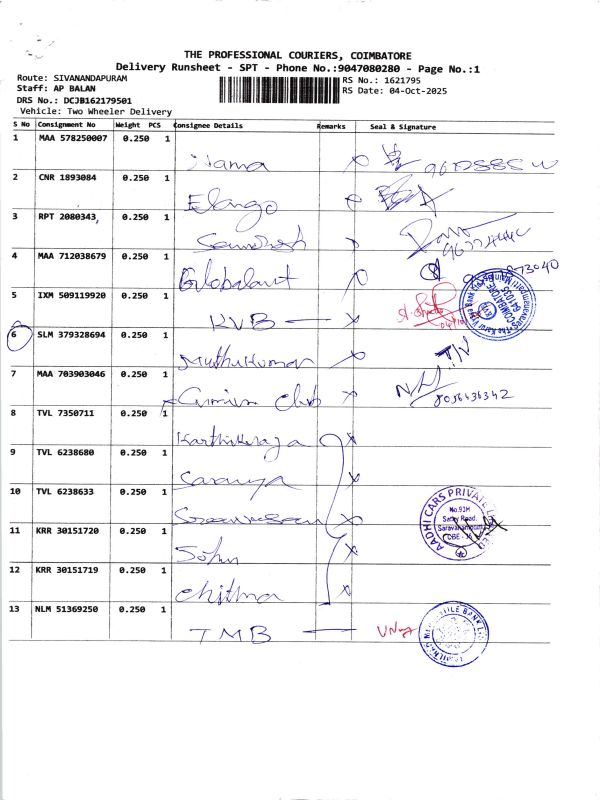 THE PROFESSIONAL COURIERS, COIMBATORE
Delivery Runsheet - SPT - Phone No.:9047080280 - Page No.:1
Route: SIVANANDAPURAM
RS No.: 1621795
Staff: AP BALAN
RS Date: 04-Oct-2025
DRS No.: DCJB162179501
Vehicle: Two Wheeler Delivery
S No Consignment No Weight PCS Consignee Details Remarks Seal & Signature
1 MAA 578250007 0.250 1
2 CNR 1893084 0.250 1 Elango
3 RPT 2080343 0.250 1
4 MAA 712038679 0.250 1
5 IXM 509119920 0.250 1 KVB
6 SLM 379328694 0.250 1 Muthukumar
7 MAA 703903046 0.250 1 Club
8056436342
8 TVL 7350711 0.250 1
9 TVL 6238680 0.250 1 Saranya
10 TVL 6238633 0.250 1
AADHI CARS PRIVATE LIMITED
No.93H
Sathy Road,
Saravanampatti
CBE - 35
11 KRR 30151720 0.250 1 John
12 KRR 30151719 0.250 1 Chithra
13 NLM 51369250 0.250 1 TMB